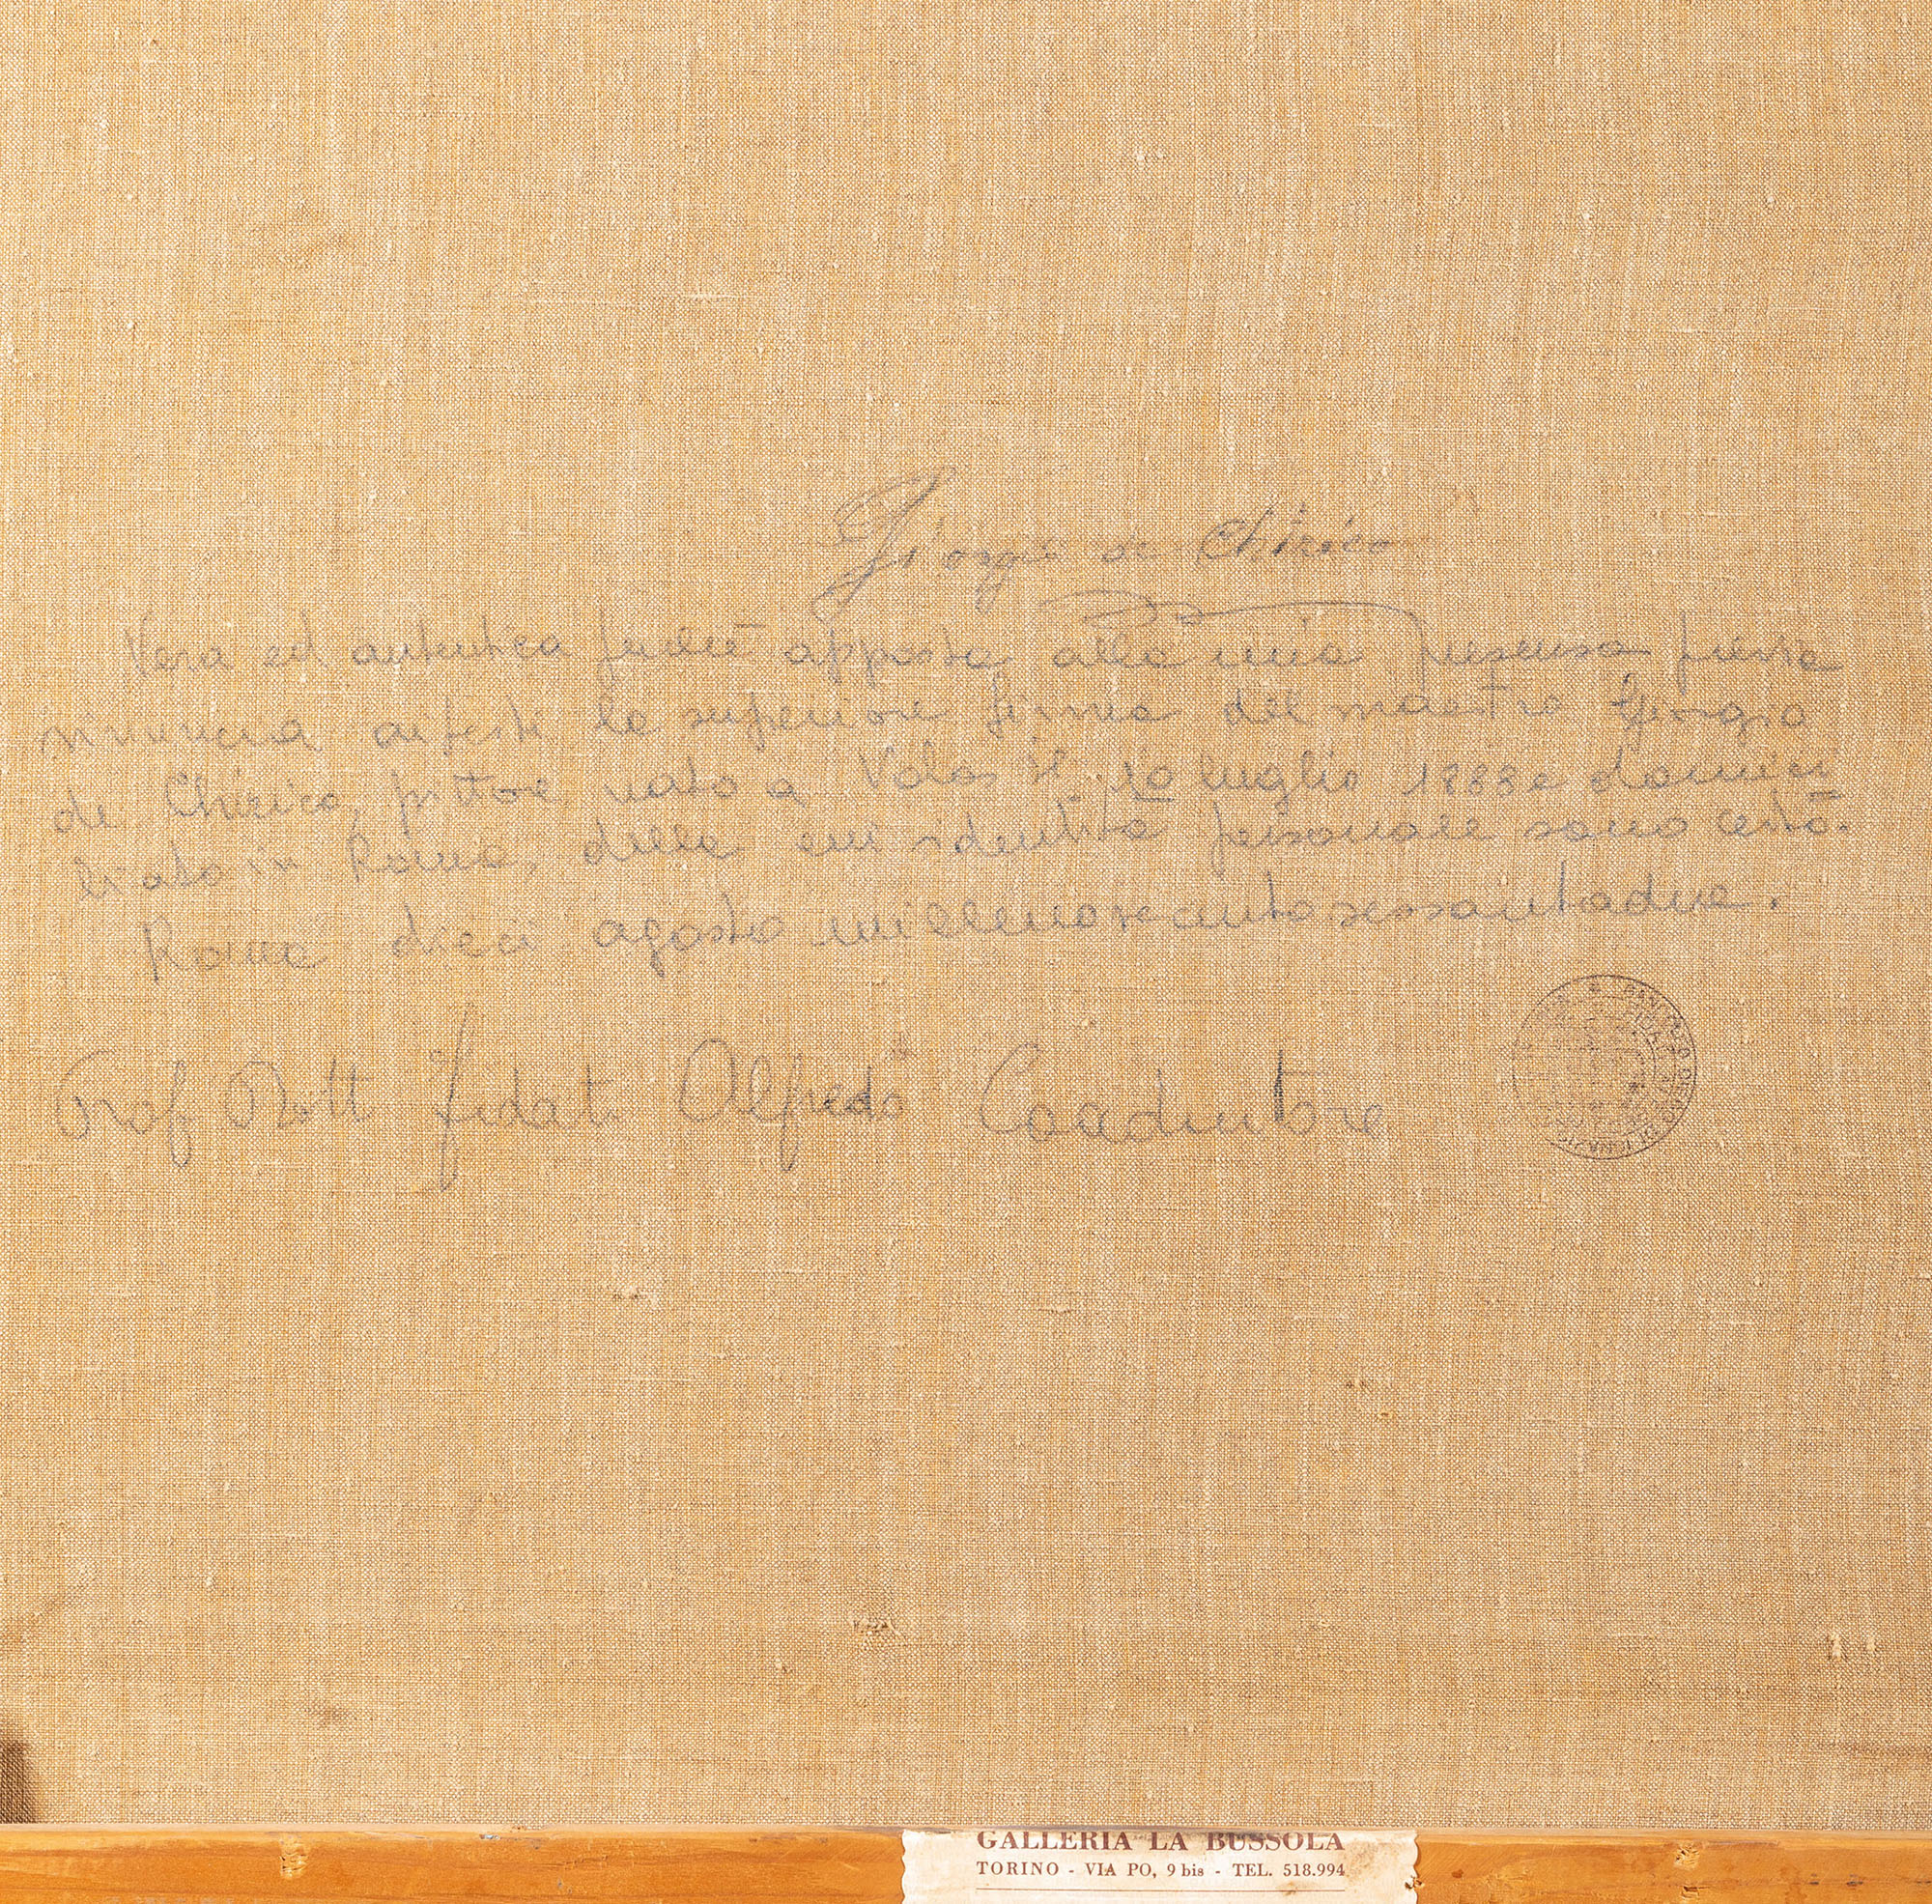 Giorgio de Chirico
Vera ed autentica perché apposta alla mia presenza previa
rinuncia ai testi la superiore firma del maestro Giorgio
de Chirico, pittore nato a Volos il 10 luglio 1888 e domici
liato in Roma, della cui identità personale sono certo.
Roma dieci agosto millenovecentosessantadue.
Prof Dott Alfredo Coadiutore
GALLERIA LA BUSSOLA
TORINO - VIA PO, 9 bis - TEL. 518.994